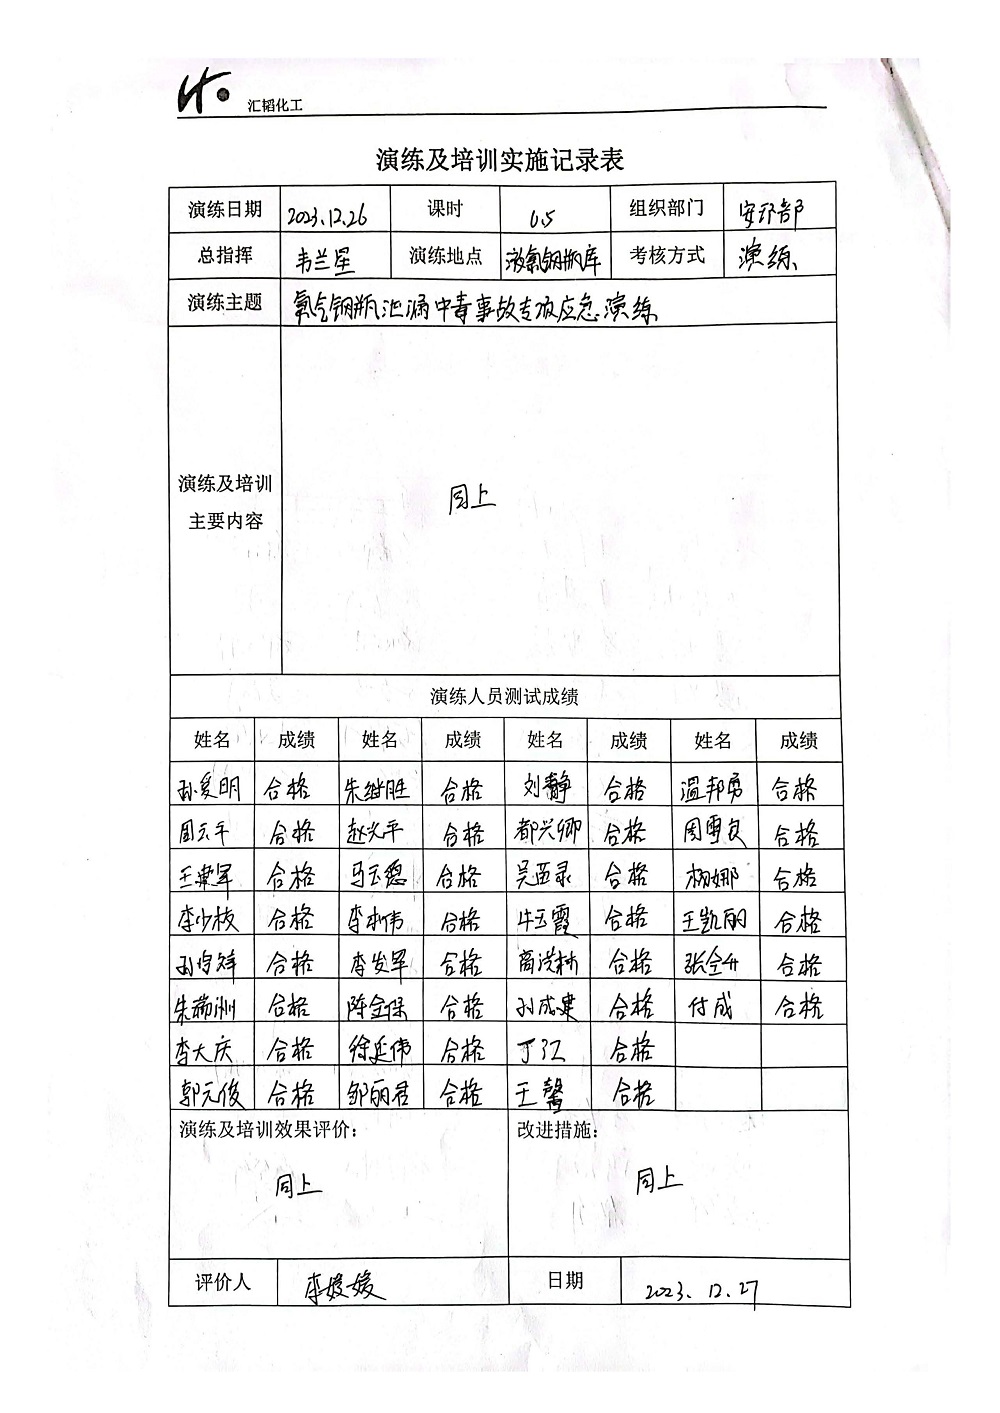 汇韬化工
演练及培训实施记录表
演练日期 2023.12.26 课时 0.5 组织部门 安环部
总指挥 韦兰星 演练地点 液氯钢瓶库 考核方式 演练
演练主题 氯气钢瓶泄漏中毒事故专项应急演练
演练及培训
主要内容
同上
演练人员测试成绩
姓名 成绩 姓名 成绩 姓名 成绩 姓名 成绩
孙爱明 合格 朱继胜 合格 刘静 合格 温邦勇 合格
周云平 合格 赵光平 合格 都兴卿 合格 周雪良 合格
王肃军 合格 马云德 合格 吴亚录 合格 杨娜 合格
李少枝 合格 李彬伟 合格 牛玉霞 合格 王凯丽 合格
合格 李发军 合格 商洪林 合格 张全升 合格
朱瑞洲 合格 陈金保 合格 孙成建 合格 付成 合格
李大庆 合格 徐延伟 合格 丁江 合格
郭元俊 合格 邹丽君 合格 王馨 合格
演练及培训效果评价: 改进措施:
同上 同上
评价人 李媛媛 日期 2023.12.27